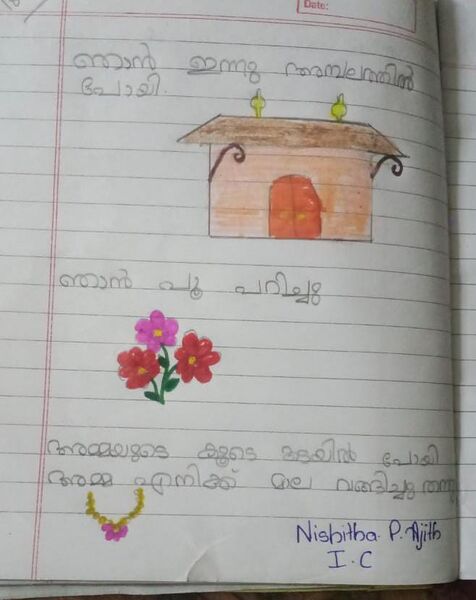 Date:
ഞാൻ ഇന്നു അമ്പലത്തിൽ
പോയി.
ഞാൻ പൂ പറിച്ചു
അമ്മയുടെ കൂടെ കടയിൽ പോയി
അമ്മ എനിക്ക് മാല വങ്ങിച്ചു തന്നു
Nishitha. P. Ajith
I. C